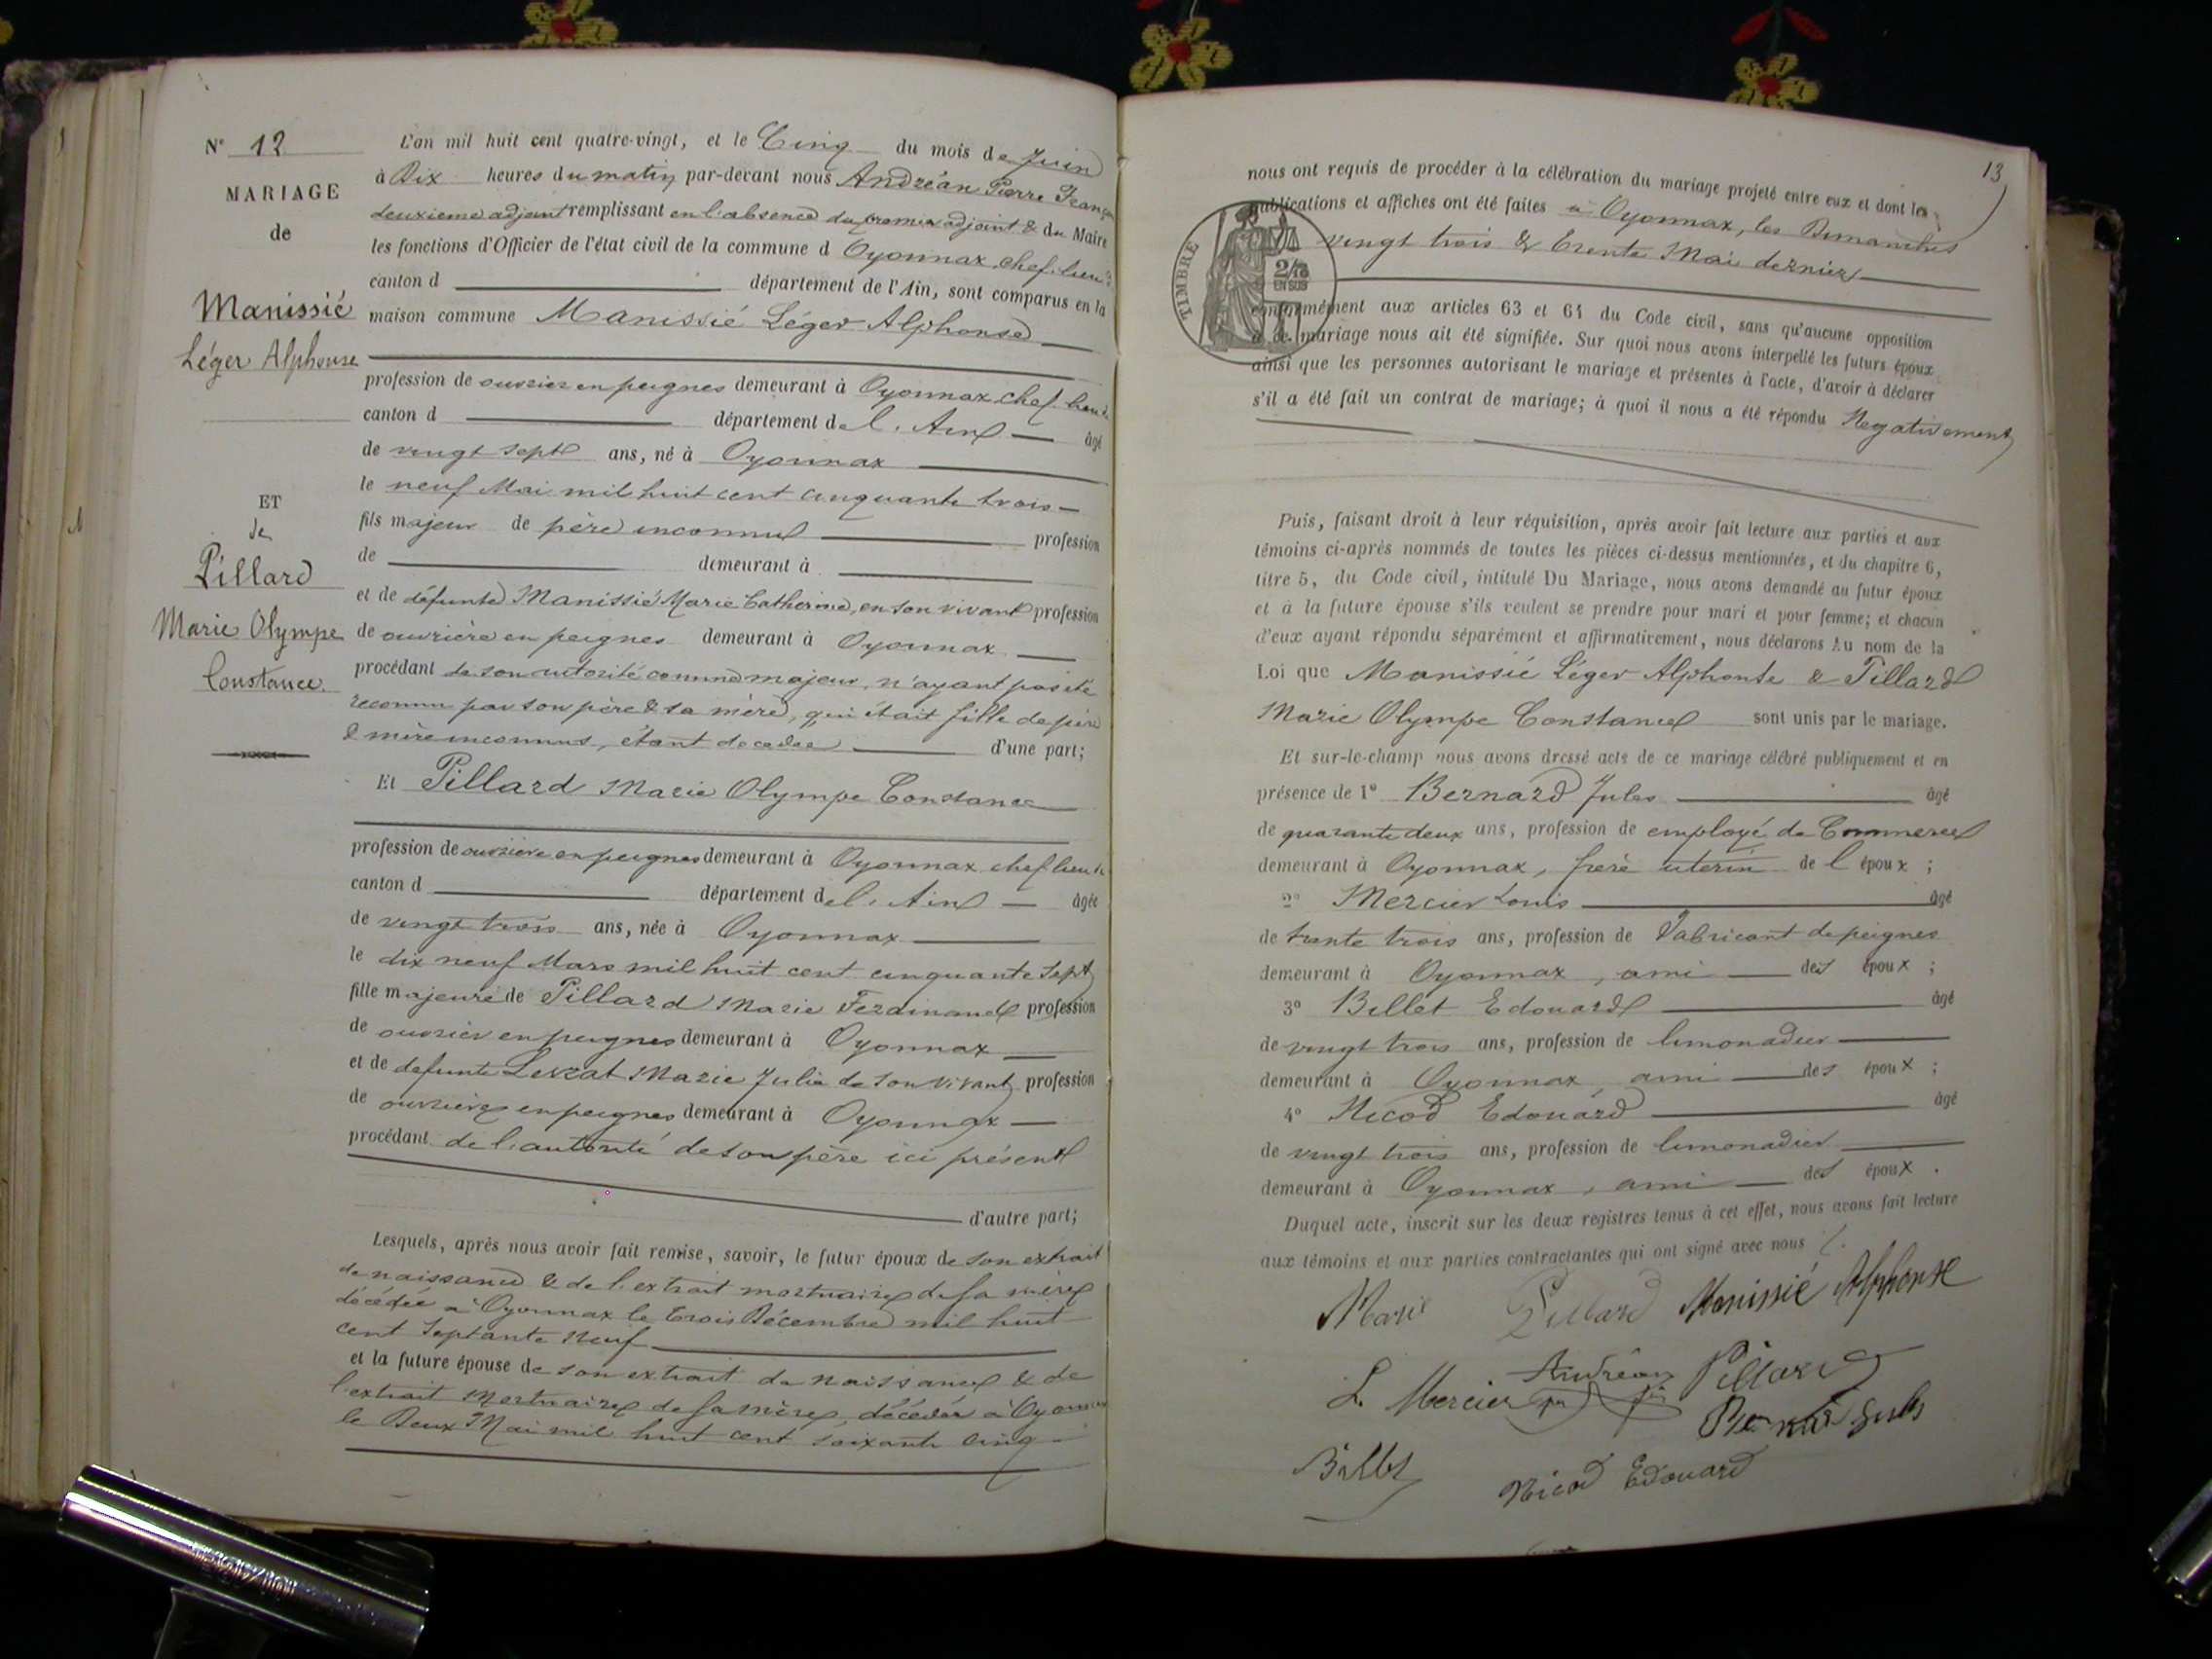 N° 12
MARIAGE
de
Manissié
Léger Alphonse
ET
de
Pillard
Marie Olympe
Constance.
L'an mil huit cent quatre-vingt, et le Cinq du mois de Juin
à Dix heures du matin par-devant nous Andréan Pierre François
deuxieme adjoint remplissant en l'absence du premier adjoint & du Maire
les fonctions d'Officier de l'état civil de la commune d Oyonnax chef-lieu de
canton d département de l'Ain, sont comparus en la
maison commune Manissié Léger Alphonse
profession de ouvrier en peignes demeurant à Oyonnax chef-lieu de
canton d département de l'Ain âgé
de vingt sept ans, né à Oyonnax
le neuf Mai mil huit cent cinquante trois
fils majeur de père inconnu profession
de demeurant à
et de défunte Manissié Marie Catherine, en son vivant profession
de ouvrière en peignes demeurant à Oyonnax
procédant de son autorité comme majeur, n'ayant pas été
reconnu par son père & sa mère, qui était fille de père
& mère inconnus, étant décédée d'une part;
Et Pillard Marie Olympe Constance
profession de ouvrière en peignes demeurant à Oyonnax chef lieu de
canton d département de l'Ain âgée
de vingt trois ans, née à Oyonnax
le dix neuf Mars mil huit cent cinquante sept
fille majeure de Pillard Marie Ferdinand profession
de ouvrier en peignes demeurant à Oyonnax
et de defunte Levrat Marie Julie de son vivant profession
de ouvrière en peignes demeurant à Oyonnax
procédant de l'autorité de son père ici présent
d'autre part;
Lesquels, après nous avoir fait remise, savoir, le futur époux de son extrait
de naissance & de l'extrait mortuaire de sa mère
décédée à Oyonnax le trois Décembre mil huit
cent septante neuf
et la future épouse de son extrait de naissance & de
l'extrait mortuaire de sa mère, décédée à Oyonnax
le Deux Mai mil huit cent soixante cinq
13
nous ont requis de procéder à la célébration du mariage projeté entre eux et dont les
publications et affiches ont été faites à Oyonnax, les Dimanches
vingt trois & trente Mai dernier
TIMBRE
2/10
EN SUS
conformément aux articles 63 et 64 du Code civil, sans qu'aucune opposition
à ce mariage nous ait été signifiée. Sur quoi nous avons interpellé les futurs époux
ainsi que les personnes autorisant le mariage et présentes à l'acte, d'avoir à déclarer
s'il a été fait un contrat de mariage; à quoi il nous a été répondu Negativement
Puis, faisant droit à leur réquisition, après avoir fait lecture aux parties et aux
témoins ci-après nommés de toutes les pièces ci-dessus mentionnées, et du chapitre 6,
titre 5, du Code civil, intitulé Du Mariage, nous avons demandé au futur époux
et à la future épouse s'ils veulent se prendre pour mari et pour femme; et chacun
d'eux ayant répondu séparément et affirmativement, nous déclarons Au nom de la
Loi que Manissié Léger Alphonse & Pillard
Marie Olympe Constance sont unis par le mariage.
Et sur-le-champ nous avons dressé acte de ce mariage célébré publiquement et en
présence de 1° Bernard Jules âgé
de quarante deux ans, profession de employé de Commerce
demeurant à Oyonnax, frere uterin de l époux ;
2° Mercier Louis âgé
de trente trois ans, profession de Fabricant de peignes
demeurant à Oyonnax, ami des époux ;
3° Billet Edouard âgé
de vingt trois ans, profession de limonadier
demeurant à Oyonnax ami des époux ;
4° Nicod Edouard âgé
de vingt trois ans, profession de limonadier
demeurant à Oyonnax, ami des époux .
Duquel acte, inscrit sur les deux registres tenus à cet effet, nous avons fait lecture
aux témoins et aux parties contractantes qui ont signé avec nous
Marie Pillard Manissié Alphonse
L. Mercier Andréan Pillard
Bernard Jules
Billet
Nicod Edouard